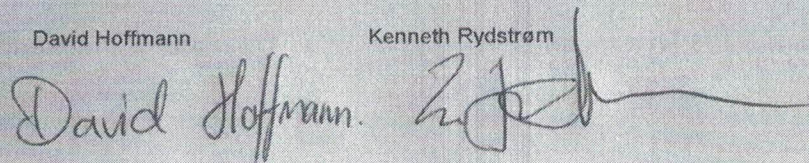 David Hoffmann Kenneth Rydstrøm
David Hoffmann.